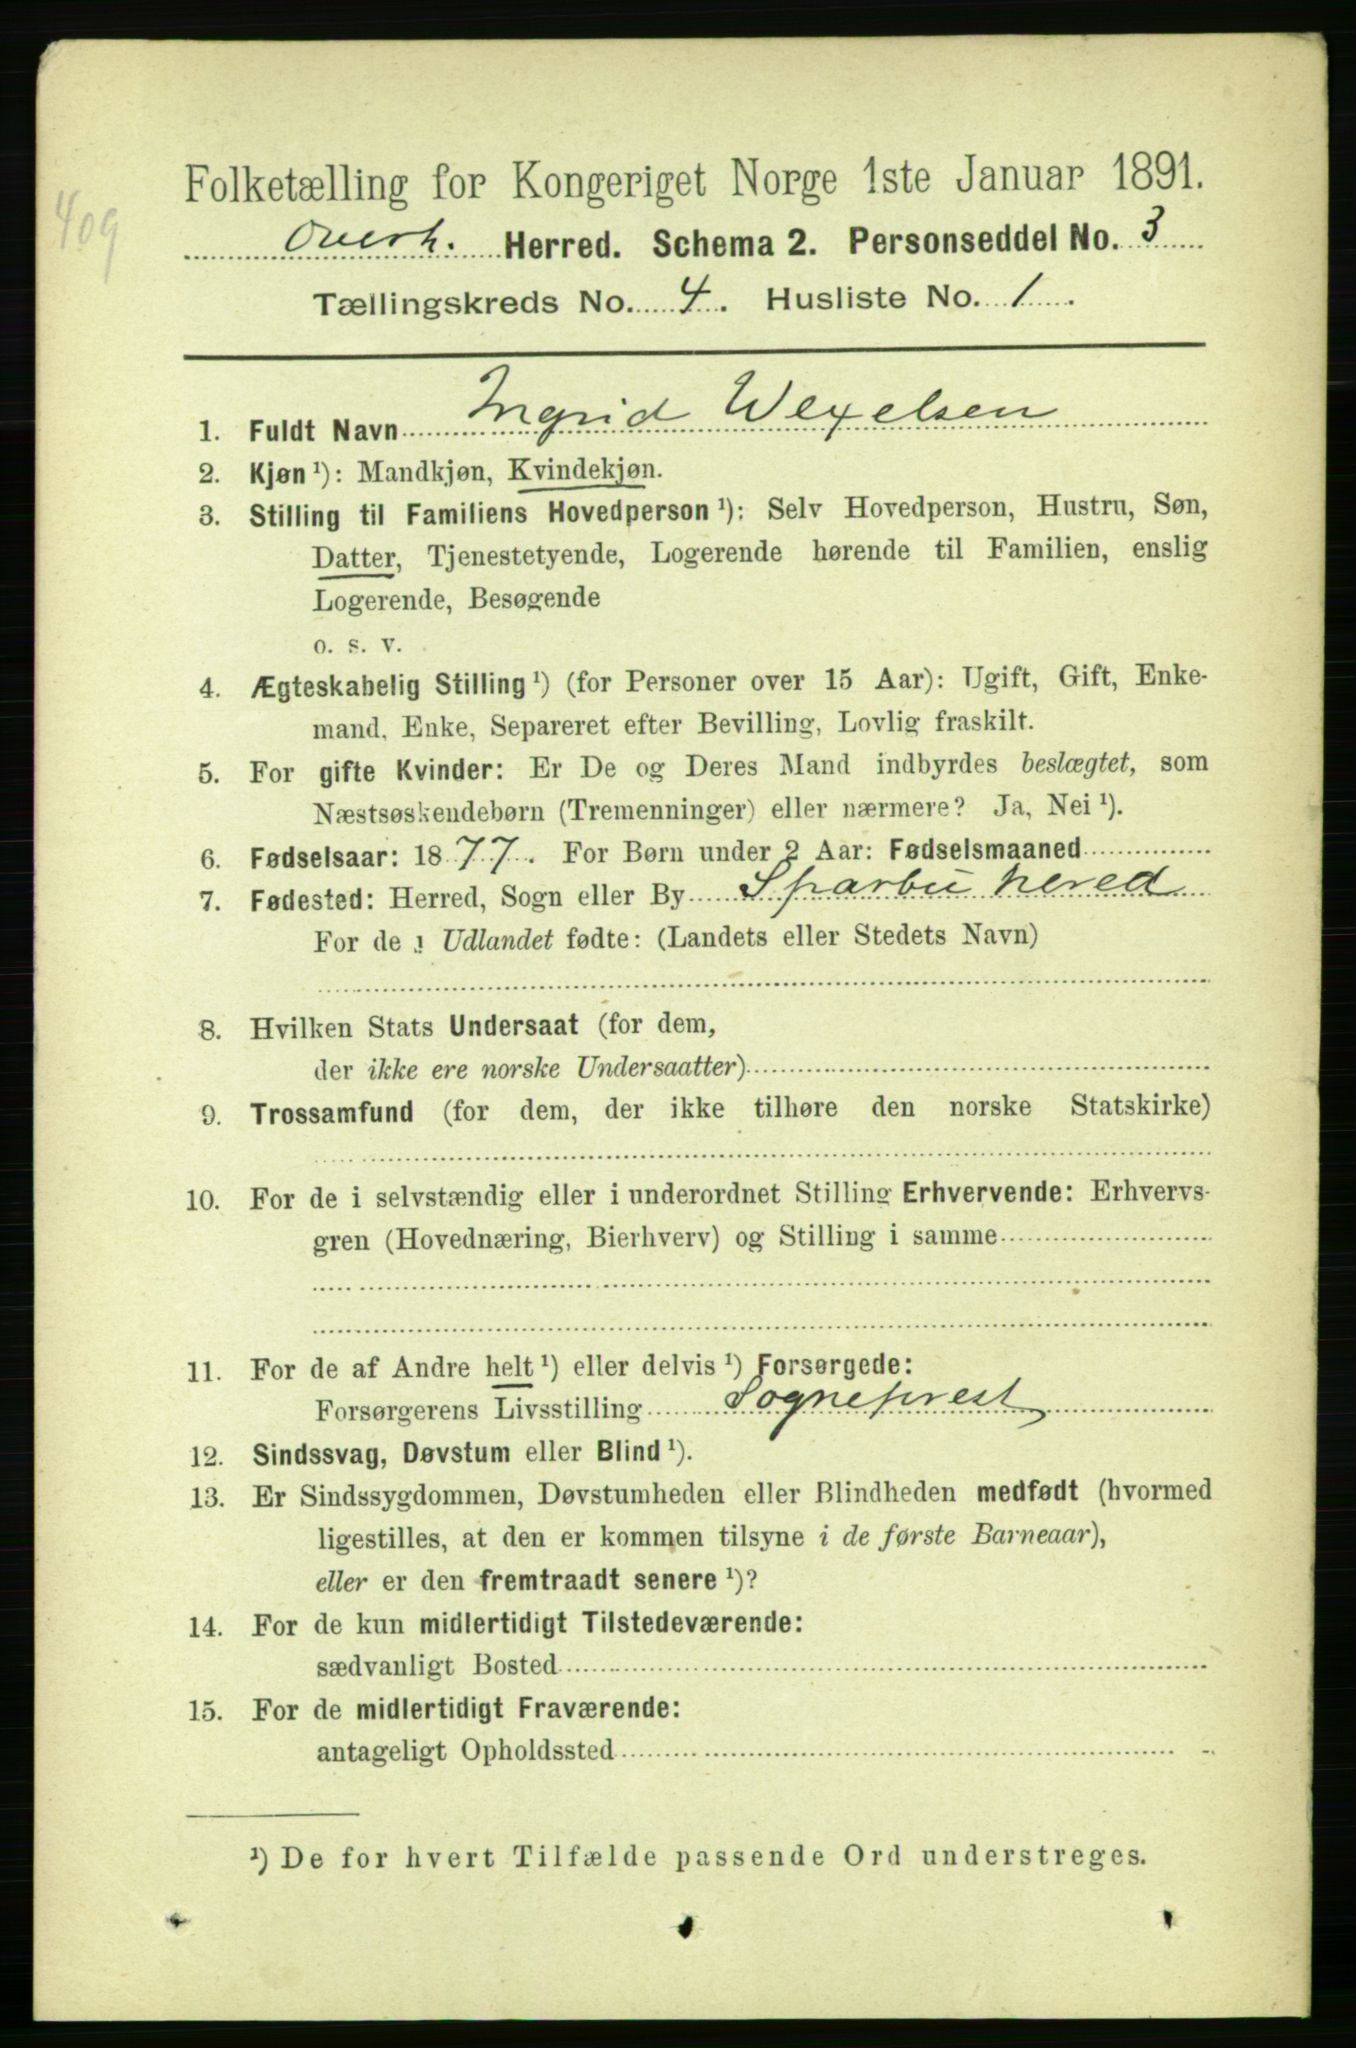 Folketælling for Kongeriget Norge 1ste Januar 1891.
409
Overh. Herred. Schema 2. Personseddel No. 3
Tællingskreds No. 4. Husliste No. 1.
1. Fuldt Navn Ingrid Wexelsen
2. Kjøn ¹): Mandkjøn, Kvindekjøn.
3. Stilling til Familiens Hovedperson ¹): Selv Hovedperson, Hustru, Søn,
Datter, Tjenestetyende, Logerende hørende til Familien, enslig
Logerende, Besøgende
o. s. v.
4. Ægteskabelig Stilling ¹) (for Personer over 15 Aar): Ugift, Gift, Enke-
mand, Enke, Separeret efter Bevilling, Lovlig fraskilt.
5. For gifte Kvinder: Er De og Deres Mand indbyrdes beslægtet, som
Næstsøskendebørn (Tremenninger) eller nærmere? Ja, Nei ¹).
6. Fødselsaar: 1877. For Børn under 2 Aar: Fødselsmaaned
7. Fødested: Herred, Sogn eller By Sparbu herred
For de i Udlandet fødte: (Landets eller Stedets Navn)
8. Hvilken Stats Undersaat (for dem,
der ikke ere norske Undersaatter)
9. Trossamfund (for dem, der ikke tilhøre den norske Statskirke)
10. For de i selvstændig eller i underordnet Stilling Erhvervende: Erhvervs-
gren (Hovednæring, Bierhverv) og Stilling i samme
11. For de af Andre helt ¹) eller delvis ¹) Forsørgede:
Forsørgerens Livsstilling Sogneprest
12. Sindssvag, Døvstum eller Blind ¹).
13. Er Sindssygdommen, Døvstumheden eller Blindheden medfødt (hvormed
ligestilles, at den er kommen tilsyne i de første Barneaar),
eller er den fremtraadt senere ¹)?
14. For de kun midlertidigt Tilstedeværende:
sædvanligt Bosted
15. For de midlertidigt Fraværende:
antageligt Opholdssted
¹) De for hvert Tilfælde passende Ord understreges.